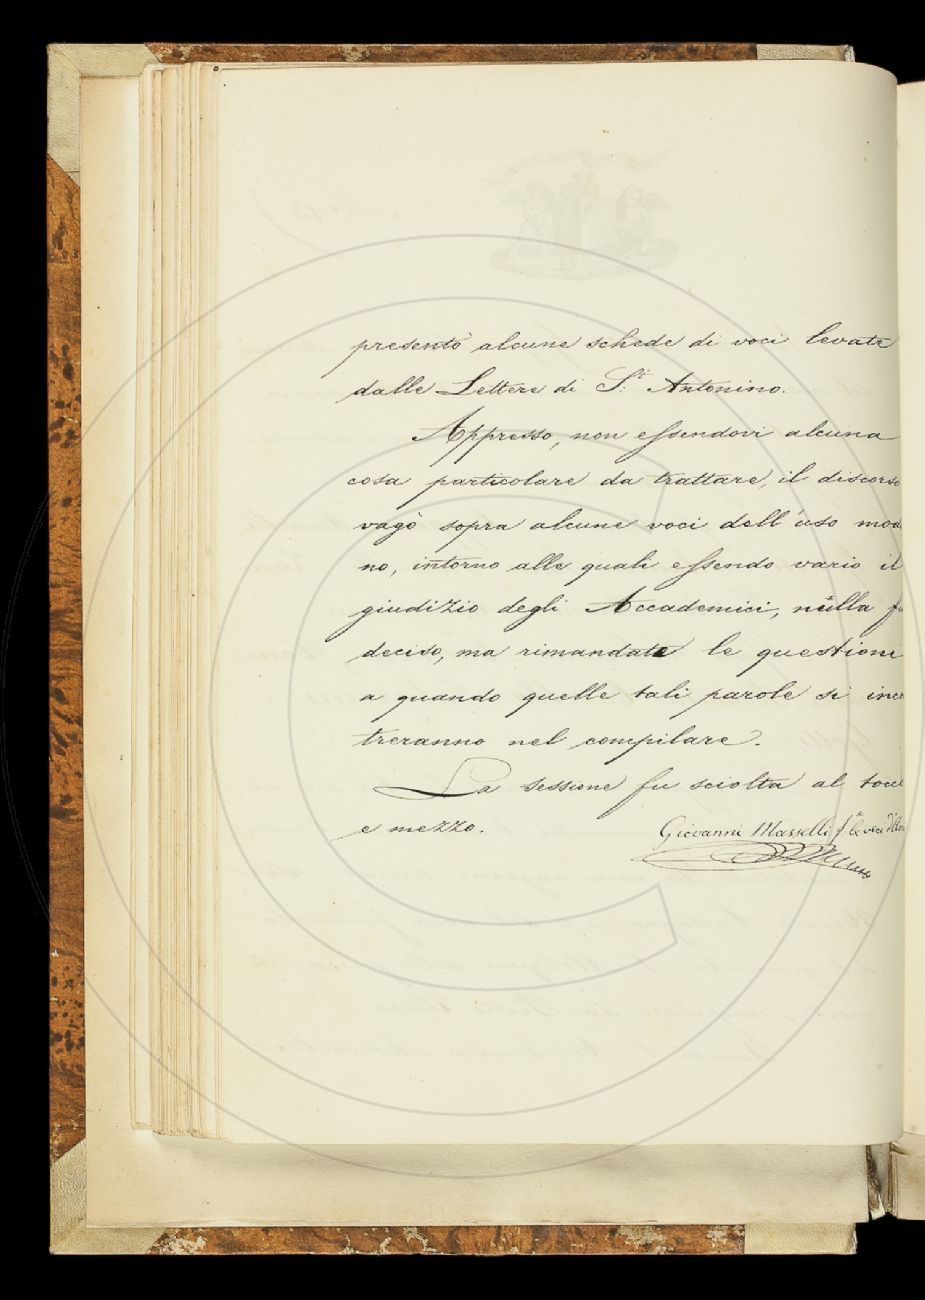 presentò alcune schede di voci levate
dalle Lettere di S.ti Antonino.
Appresso, non essendovi alcuna
cosa particolare da trattare, il discorso
vagò sopra alcune voci dell'uso mod
no, intorno alle quali essendo vario il
giudizio degli Accademici, nulla fu
deciso, ma rimandate le questioni
a quando quelle tali parole si inco
treranno nel compilare.
La sessione fu sciolta al tocc
e mezzo.
Giovanni Masselli f. le veci